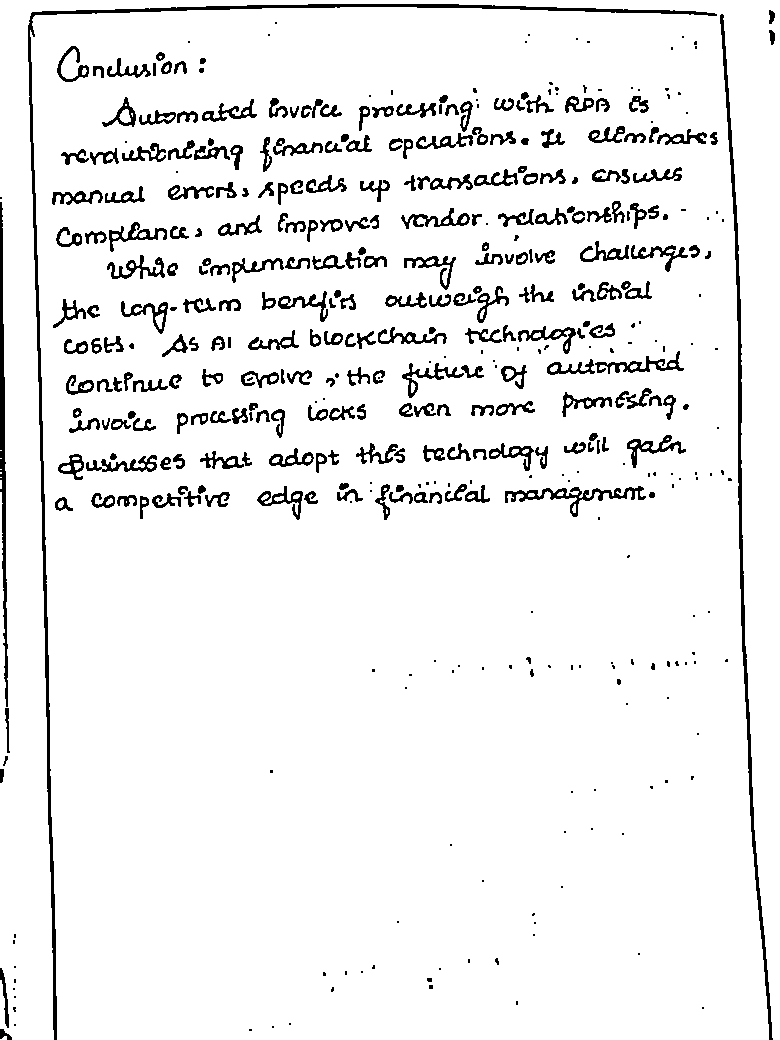 Conclusion:
Automated invoice processing with RPA is
revolutionizing financial operations. It eliminates
manual errors, speeds up transactions, ensures
Compliance, and improves vendor relationships.
While implementation may involve challenges,
the long-term benefits outweigh the initial
costs. As AI and blockchain technologies
continue to evolve, the future of automated
invoice processing looks even more promising.
Businesses that adopt this technology will gain
a competitive edge in financial management.